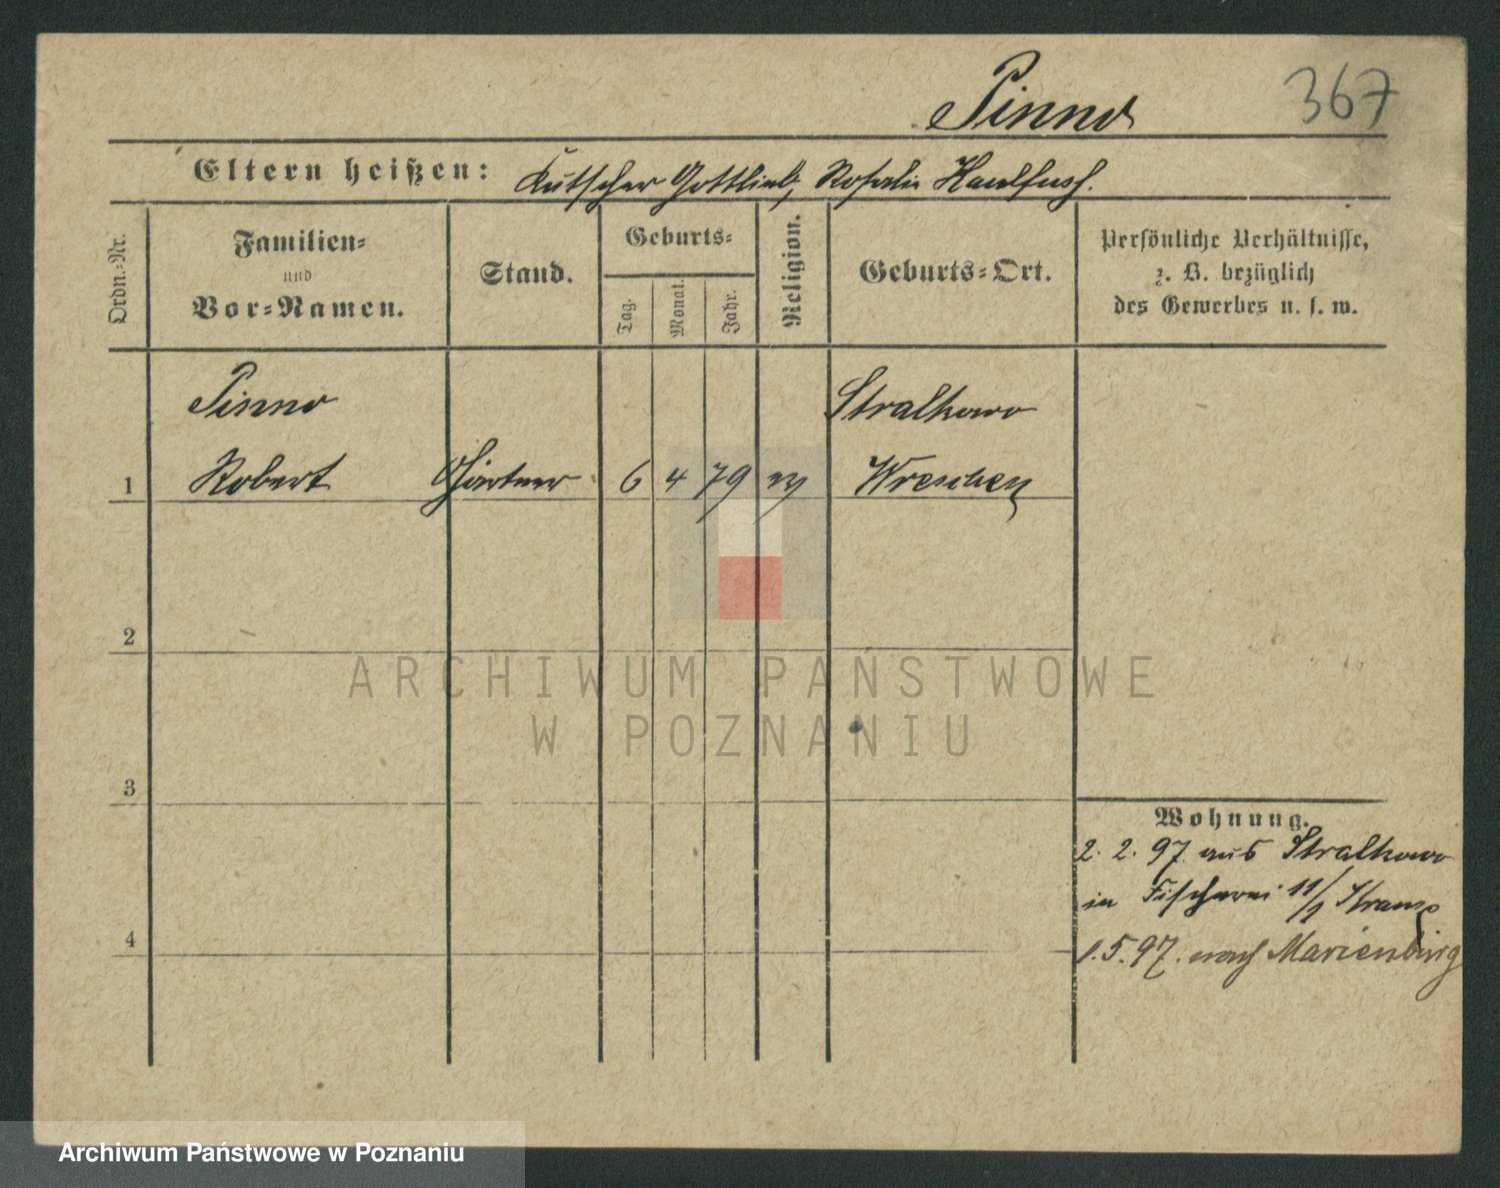 Pinno
367
Eltern heißen: Kutscher Gottlieb, Rosalie
Ordn.-Nr.
Familien-
und
Vor-Namen.
Stand.
Geburts-
Tag.
Monat.
Jahr.
Religion.
Geburts-Ort.
Persönliche Verhältnisse,
z. B. bezüglich
des Gewerbes u. s. w.
Pinno
Stralkowo
1 Robert Gärtner 6 4 79 Wreschen
2
ARCHIWUM PAŃSTWOWE
W POZNANIU
3
Wohnung.
2. 2. 97 aus Stralkowo
in Fischerei 11/1
4
1. 5. 97. nach Marienburg
Archiwum Państwowe w Poznaniu